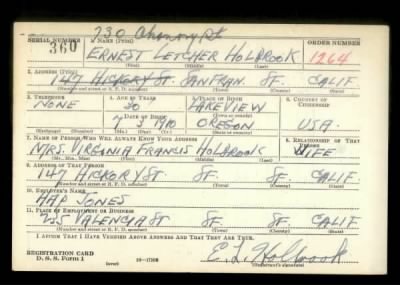 730
SERIAL NUMBER 1. NAME (Print) ORDER NUMBER
360 ERNEST LETCHER HOLBROOK 1264
(First) (Middle) (Last)
2. ADDRESS (Print)
147 HICKORY ST. SAN FRAN. SF. CALIF
(Number and street or R. F. D. number) (Town) (County) (State)
3. TELEPHONE 4. AGE IN YEARS 5. PLACE OF BIRTH 6. COUNTRY OF CITIZENSHIP
NONE 30 LAKEVIEW
DATE OF BIRTH (Town or county)
7 3 1910 OREGON USA.
(Mo.) (Day) (Yr.) (State or country)
7. NAME OF PERSON WHO WILL ALWAYS KNOW YOUR ADDRESS 8. RELATIONSHIP OF THAT PERSON
MRS. VIRGINIA FRANCIS HOLBROOK WIFE
(Mr., Mrs., Miss) (First) (Middle) (Last)
9. ADDRESS OF THAT PERSON
147 HICKORY ST SF. SF. CALIF
(Number and street or R. F. D. number) (Town) (County) (State)
10. EMPLOYER'S NAME
HAP JONES
11. PLACE OF EMPLOYMENT OR BUSINESS
235 VALENCIA ST SF. SF. CALIF
(Number and street or R. F. D. number) (Town) (County) (State)
I AFFIRM THAT I HAVE VERIFIED ABOVE ANSWERS AND THAT THEY ARE TRUE.
REGISTRATION CARD
D. S. S. Form 1 (over) 16—17105 E. L. Holbrook
(Registrant's signature)